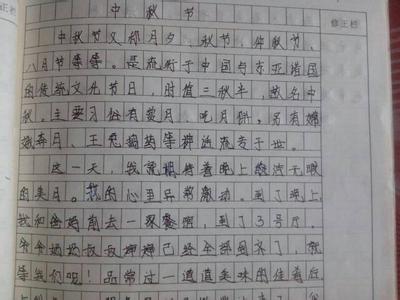 中秋节
修正栏
中秋节又称月夕、秋节、仲秋节、
八月节等等。是流行于中国与东亚诸国
的传统文化节日,时值三秋半,故名中
秋。主要习俗有赏月、吃月饼,另有嫦
娥奔月、玉兔捣药等神话流传于世。
这一天,我就期待着晚上皎洁无暇
的美月。我的心里异常激动。到了晚上
我和爸妈前去一家餐馆,到了3号厅。
爷爷奶奶叔叔婶婶已经全部到齐了,就
等我们呢!品尝过一道道美味的佳肴后